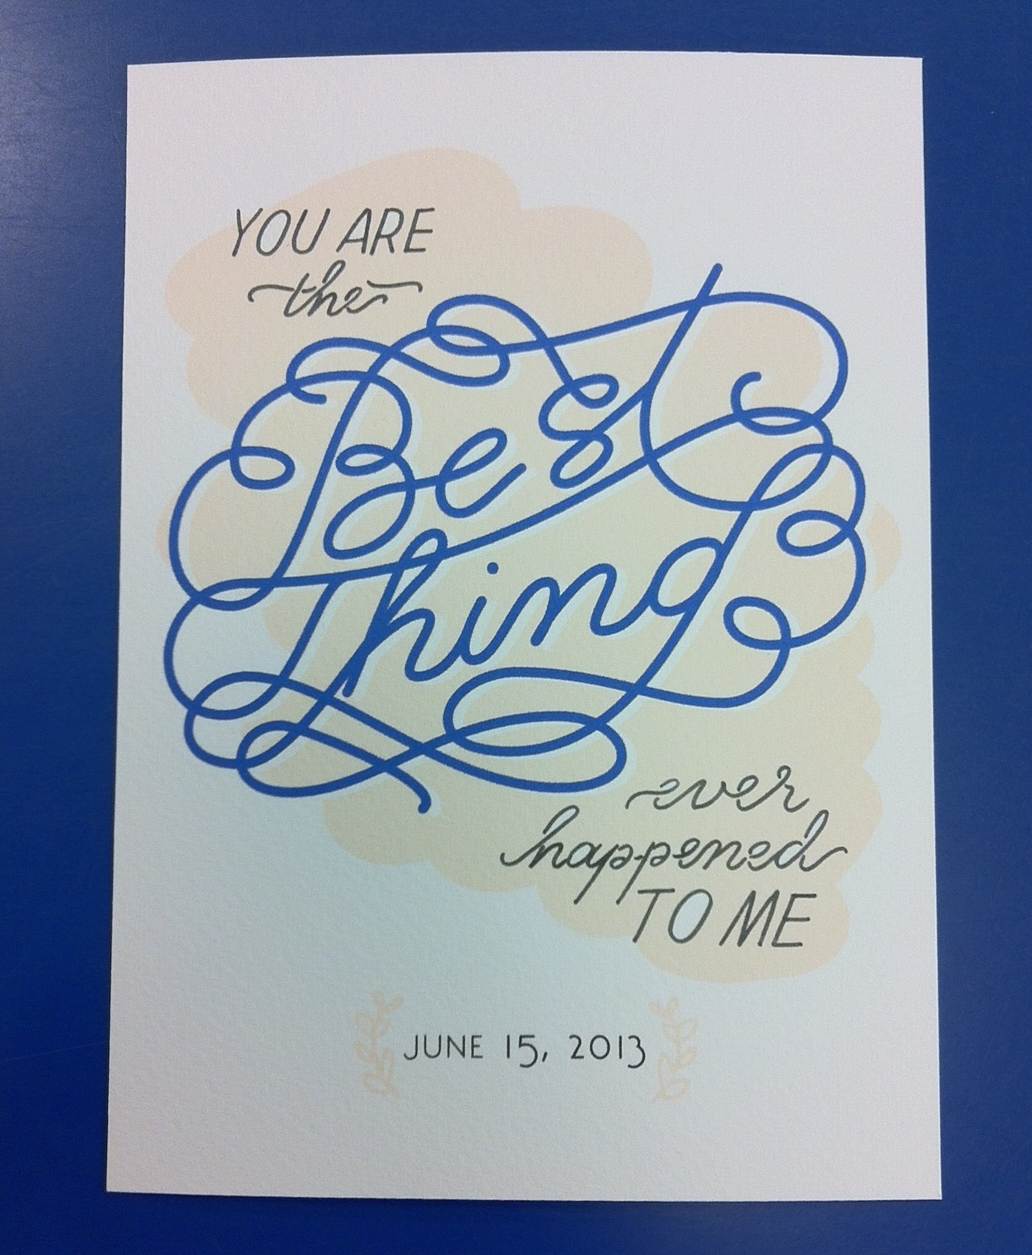 YOU ARE
the
Best
Thing
ever
happened
TO ME
JUNE 15, 2013